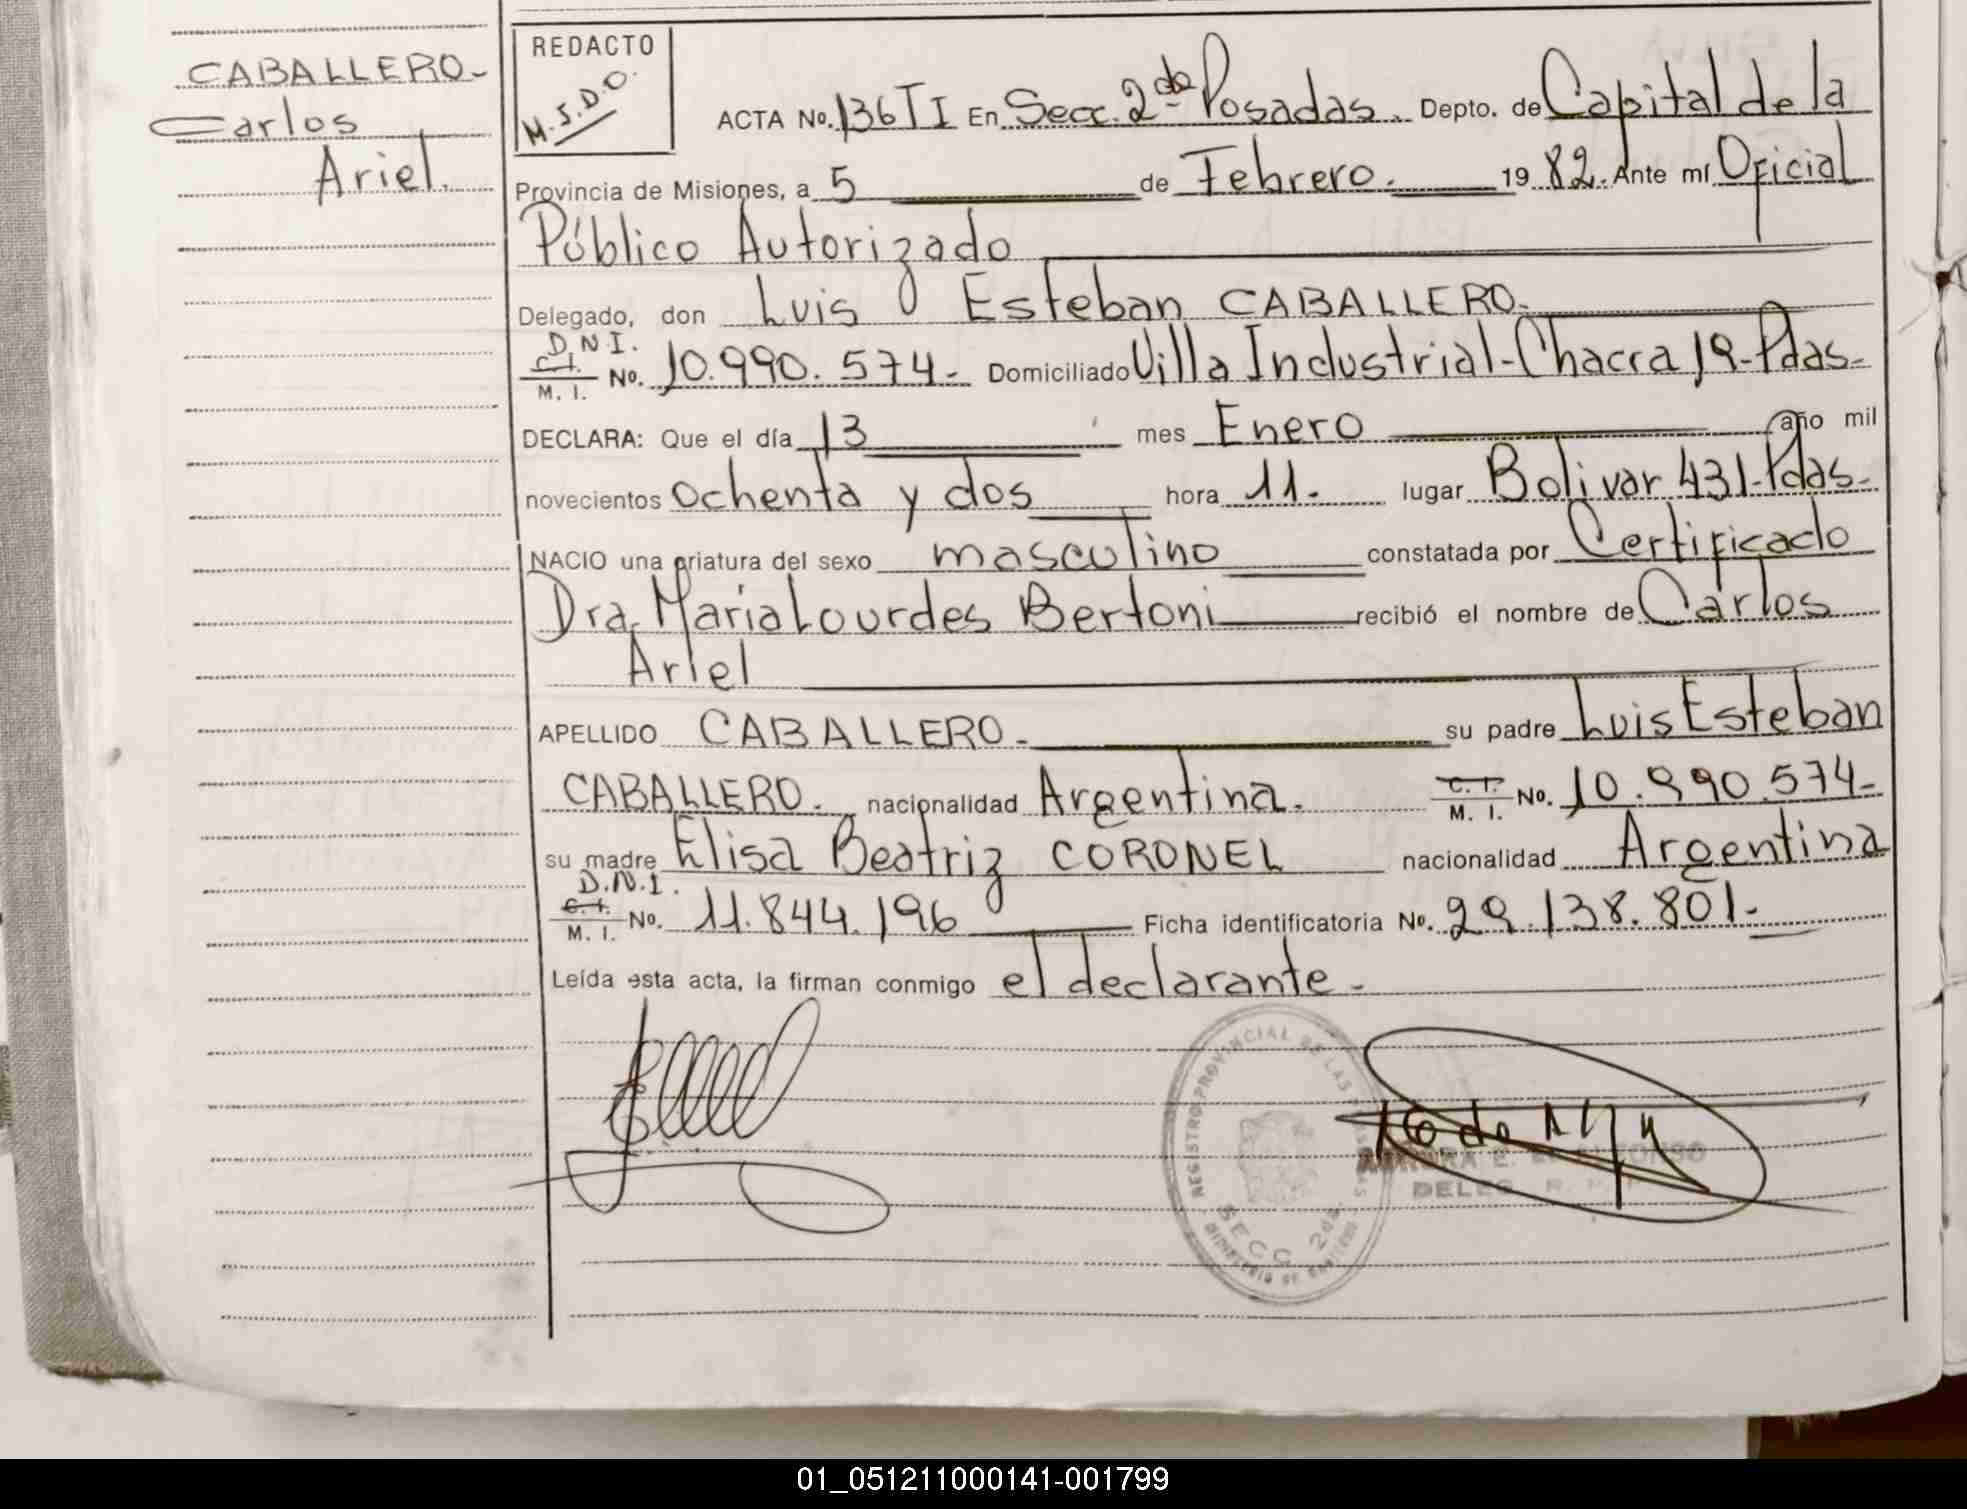 CABALLERO-
Carlos
Ariel.
REDACTO
M.S.D.O.
ACTA No. 136 T I En Secc. 2da Posadas. Depto. de Capital de la
Provincia de Misiones, a 5 de Febrero. 1982. Ante mí Oficial
Público Autorizado
Delegado, don Luis Esteban CABALLERO.
D.N.I.
C. I.
M. I. No. 10.990.574- Domiciliado Villa Industrial-Chacra 19-Pdas-
DECLARA: Que el día 13 mes Enero año mil
novecientos ochenta y dos hora 11. lugar Bolivar 431-Pdas-
NACIO una criatura del sexo masculino constatada por Certificado
Dra. María Lourdes Bertoni recibió el nombre de Carlos
Ariel
APELLIDO CABALLERO.- su padre Luis Esteban
CABALLERO. nacionalidad Argentina. C. I. M. I. No. 10.990.574-
su madre Elisa Beatriz CORONEL nacionalidad Argentina
D.N.I.
C. I.
M. I. No. 11.844.196 Ficha identificatoria No. 29.138.801-
Leída esta acta, la firman conmigo el declarante-
REGISTRO PROVINCIAL DE LAS PERSONAS
SECC. 2da.
DELEG. R. P.
01_051211000141-001799